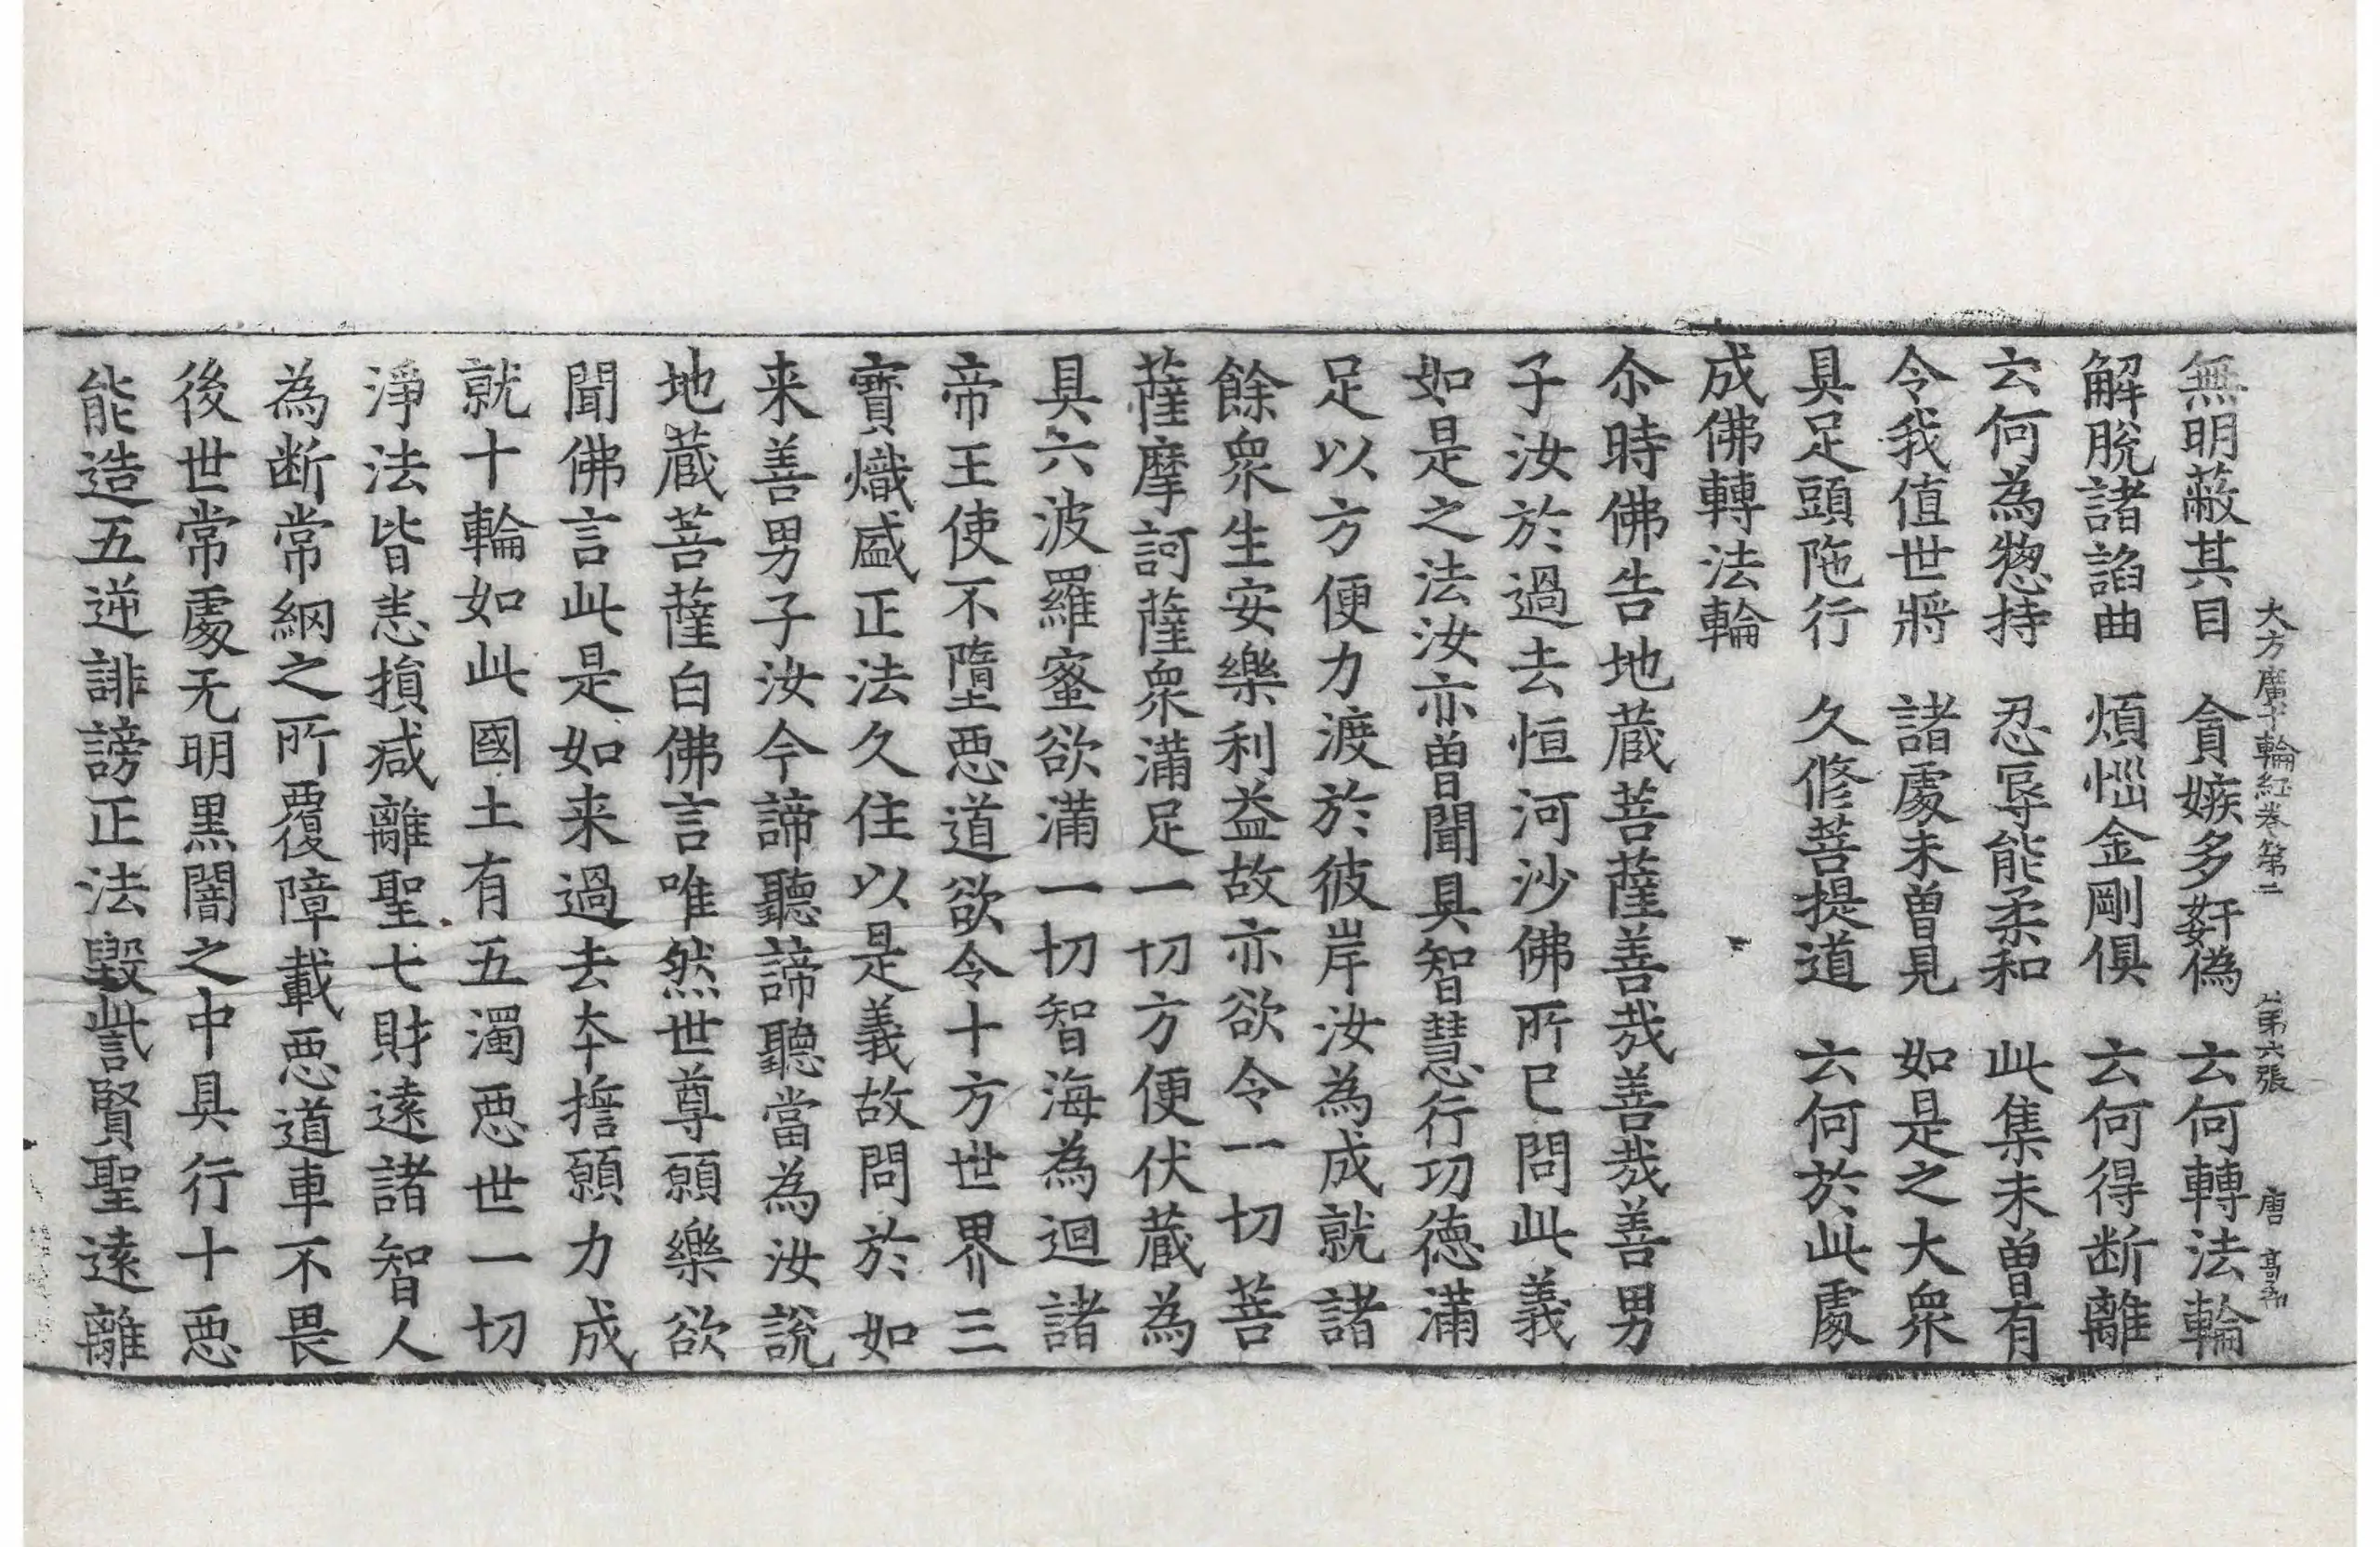 大方廣十輪經卷第二 第六張 唐 高
無明蔽其目 貪嫉多姧偽 云何轉法輪
解脫諸諂曲 煩惱金剛俱 云何得断離
云何為惣持 忍辱能柔和 此集未曽有
令我值世將 諸䖏未曽見 如是之大衆
具足頭陁行 久修菩提道 云何於此䖏
成佛轉法輪
尒時佛告地蔵菩薩善㢤善㢤善男
子汝於過去恒河沙佛所已問此義
如是之法汝亦曽聞具智慧行功德滿
足以方便力渡於彼岸汝為成就諸
餘衆生安樂利益故亦欲令一切菩
薩摩訶薩衆滿足一切方便伏蔵為
具六波羅蜜欲滿一切智海為迴諸
帝王使不墮惡道欲令十方世界三
寶熾盛正法久住以是義故問於如
来善男子汝今諦聽諦聽當為汝說
地蔵菩薩白佛言唯然世尊願樂欲
聞佛言此是如来過去本誓願力成
就十輪如此國土有五濁惡世一切
淨法皆悉損減離聖七財遠諸智人
為断常網之所覆障載惡道車不畏
後世常䖏无明黒闇之中具行十惡
能造五逆誹謗正法毀訾賢聖遠離